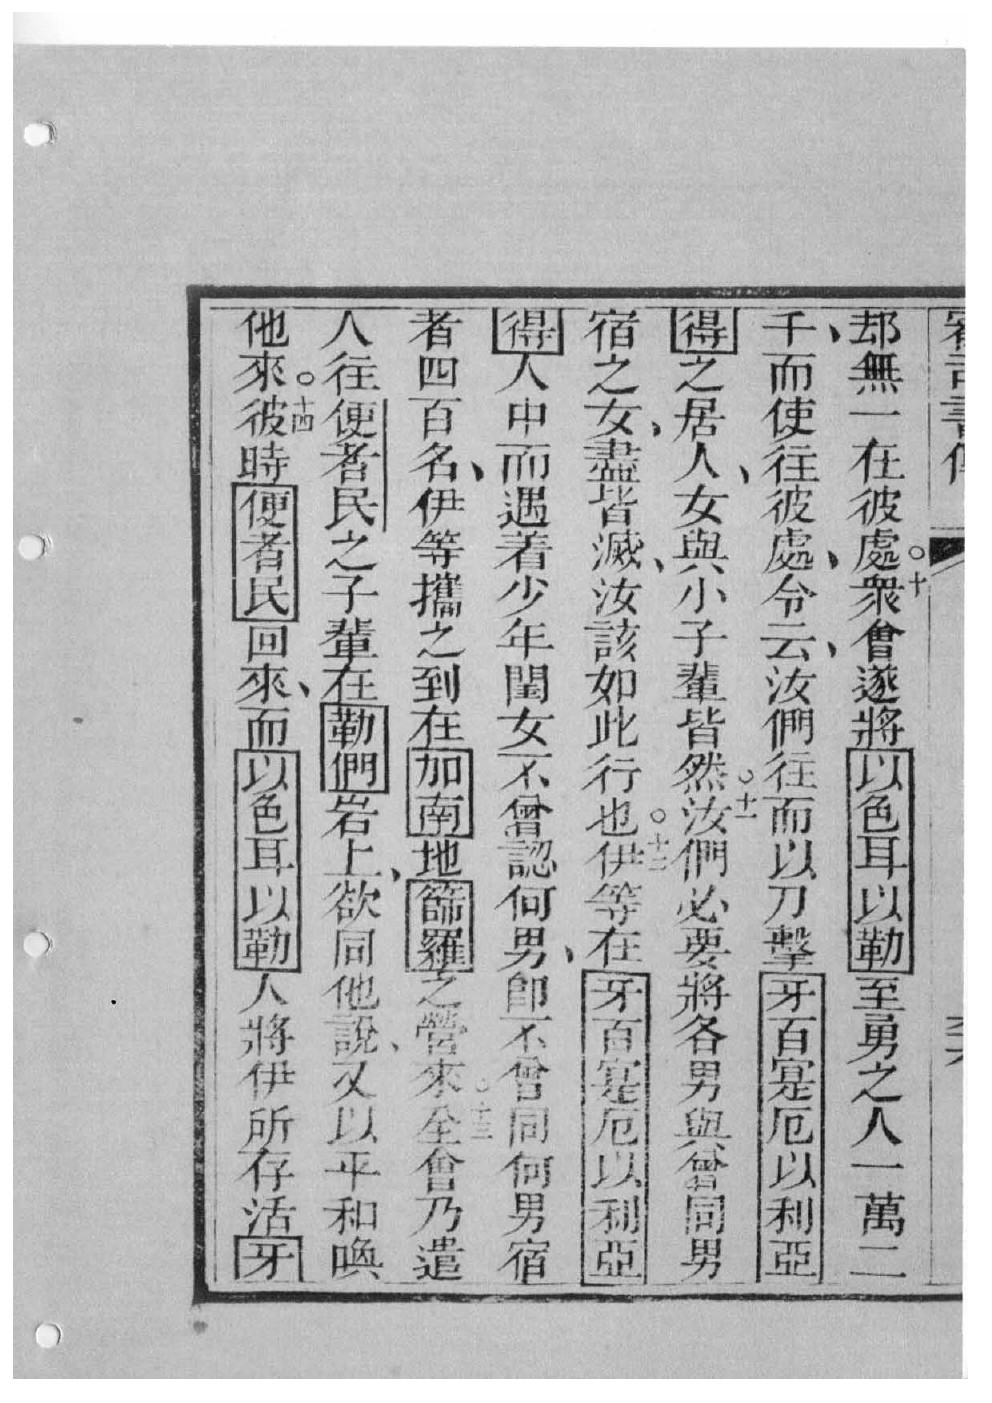 審司書傳
却無一在彼處○十衆會遂將以色耳以勒至勇之人一萬二
千、而使往彼處、令云、汝們往而以刀擊牙百寔厄以利亞
得之居人、女與小子輩皆然○十一汝們必要將各男與曾同男
宿之女、盡皆滅、汝該如此行也○十二伊等在牙百寔厄以利亞
得人中而遇着少年閨女不曾認何男、卽不曾同何男宿
者四百名、伊等攜之到在加南地篩羅之營來○十三至會乃遣
人往便者民之子輩在勒們岩上、欲同他說、又以平和喚
他來○十四彼時便者民回來、而以色耳以勒人將伊所存活牙